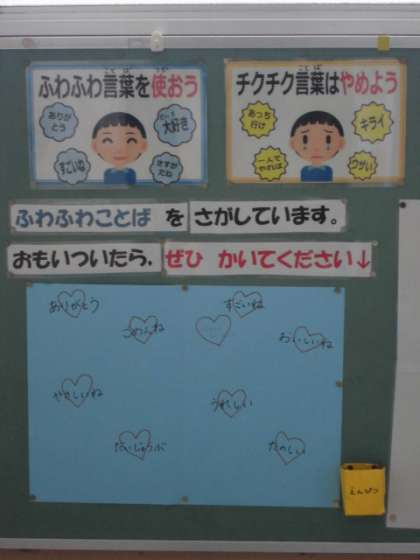 ふわふわ言葉を使おう
ありがとう
大好き
すごいね
さすがだね
チクチク言葉はやめよう
あっち行け
キライ
一人でやれば
うざい
ふわふわことば を さがしています。
おもいついたら、ぜひ かいてください↓
ありがとう
すごいね
ごめんね
おいしいね
やさしいね
うれしい
だいじょうぶ
たのしい
えんぴつ